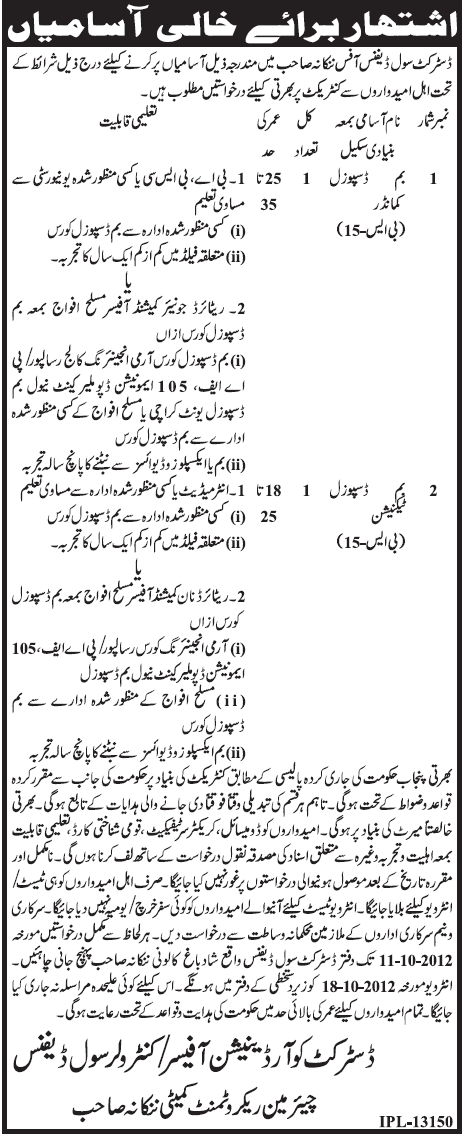 اشتہار برائے خالی آسامیاں
ڈسٹرکٹ سول ڈیفنس آفس ننکانہ صاحب میں مندرجہ ذیل آسامیاں پر کرنے کیلئے درج ذیل شرائط کے
تحت اہل امیدواروں سے کنٹریکٹ پر بھرتی کیلئے درخواستیں مطلوب ہیں۔
نمبر شمار نام آسامی بمعہ بنیادی سکیل کل تعداد عمر کی حد تعلیمی قابلیت
1 بم ڈسپوزل کمانڈر (بی ایس-15) 1 25 تا 35
1۔ بی اے، بی ایس سی یا کسی منظور شدہ یونیورسٹی سے
مساوی تعلیم
(i) کسی منظور شدہ ادارہ سے بم ڈسپوزل کورس
(ii) متعلقہ فیلڈ میں کم از کم ایک سال کا تجربہ۔
یا
2۔ ریٹائرڈ جونیئر کمیشنڈ آفیسر مسلح افواج بمعہ بم
ڈسپوزل کورس ازاں
(i) بم ڈسپوزل کورس آرمی انجینئرنگ کالج رسالپور/ پی
اے ایف، 105 ایمونیشن ڈپو ملیر کینٹ نیول بم
ڈسپوزل یونٹ کراچی یا مسلح افواج کے کسی منظور شدہ
ادارے سے بم ڈسپوزل کورس
(ii) بم یا ایکسپلوزو ڈیوائسز سے نبٹنے کا پانچ سالہ تجربہ
2 بم ڈسپوزل ٹیکنیشن (بی ایس-15) 1 18 تا 25
1۔ انٹرمیڈیٹ یا کسی منظور شدہ ادارہ سے مساوی تعلیم
(i) کسی منظور شدہ ادارہ سے بم ڈسپوزل کورس
(ii) متعلقہ فیلڈ میں کم از کم ایک سال کا تجربہ۔
یا
2۔ ریٹائرڈ نان کمیشنڈ آفیسر مسلح افواج بمعہ بم ڈسپوزل
کورس ازاں
(i) آرمی انجینئرنگ کورس رسالپور/ پی اے ایف، 105
ایمونیشن ڈپو ملیر کینٹ نیول بم ڈسپوزل
(ii) مسلح افواج کے منظور شدہ ادارے سے بم
ڈسپوزل کورس
(ii) بم ایکسپلوزو ڈیوائسز سے نبٹنے کا پانچ سالہ تجربہ
بھرتی پنجاب حکومت کی جاری کردہ پالیسی کے مطابق کنٹریکٹ کی بنیاد پر حکومت کی جانب سے مقرر کردہ
قواعد و ضوابط کے تحت ہوگی۔ تاہم ہر قسم کی تبدیلی وقتاً فوقتاً دی جانے والی ہدایات کے تابع ہوگی۔ بھرتی
خالصتاً میرٹ کی بنیاد پر ہوگی۔ امیدواروں کو ڈومیسائل، کریکٹر سرٹیفکیٹ، قومی شناختی کارڈ، تعلیمی قابلیت
بمعہ اہلیت و تجربہ وغیرہ سے متعلق اسناد کی مصدقہ نقول درخواست کے ساتھ لف کرنا ہوں گی۔ نامکمل اور
مقررہ تاریخ کے بعد موصول ہونیوالی درخواستوں پر غور نہیں کیا جائیگا۔ صرف اہل امیدواروں کو ہی ٹیسٹ/
انٹرویو کیلئے بلایا جائیگا۔ انٹرویو ٹیسٹ کیلئے آنیوالے امیدواروں کو کوئی سفر خرچ/ یومیہ نہیں دیا جائیگا۔ سرکاری
و نیم سرکاری اداروں کے ملازمین محکمانہ وساطت سے درخواست دیں۔ ہر لحاظ سے مکمل درخواستیں مورخہ
11-10-2012 تک دفتر ڈسٹرکٹ سول ڈیفنس واقع شاد باغ کالونی ننکانہ صاحب پہنچ جانی چاہئیں۔
انٹرویو مورخہ 18-10-2012 کو زیر دستخطی کے دفتر میں ہونگے۔ اس کیلئے کوئی علیحدہ مراسلہ نہ جاری کیا
جائیگا۔ تمام امیدواروں کیلئے عمر کی بالائی حد میں حکومت کی ہدایت و قواعد کے تحت رعایت ہوگی۔
ڈسٹرکٹ کوآرڈینیشن آفیسر/ کنٹرولر سول ڈیفنس
چیئرمین ریکروٹمنٹ کمیٹی ننکانہ صاحب
IPL-13150